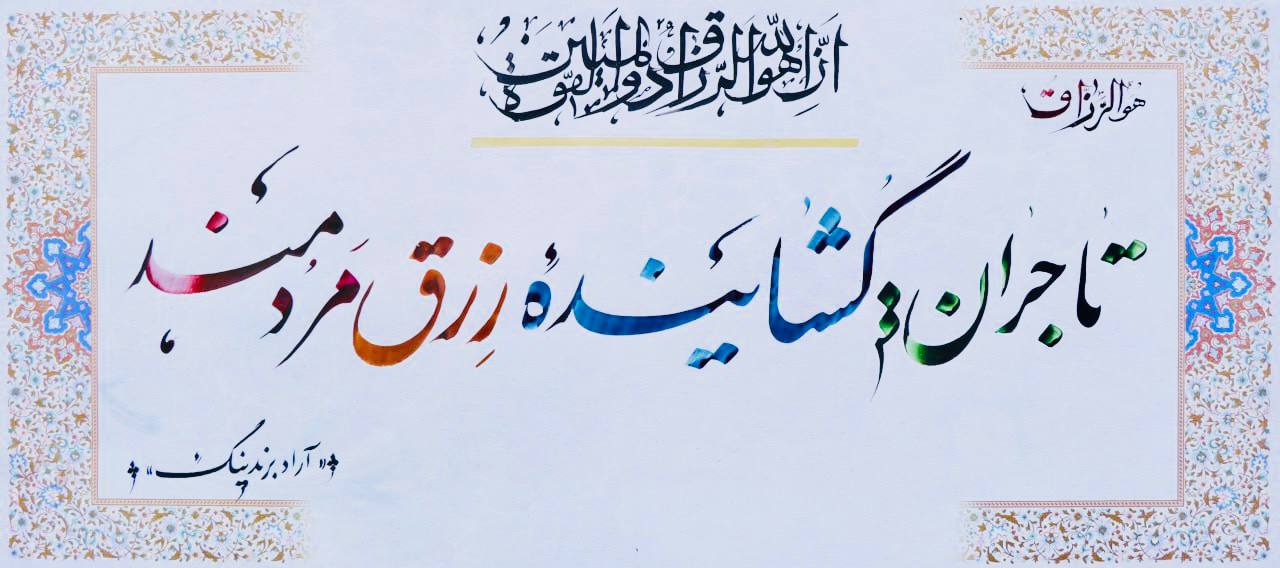 إنَّ الله هو الرَّزّاق ذو القوّة المتین
هو الرَّزّاق
تاجران؛ گُشایندهٔ رِزق مَردمند
«آراد برندینگ»